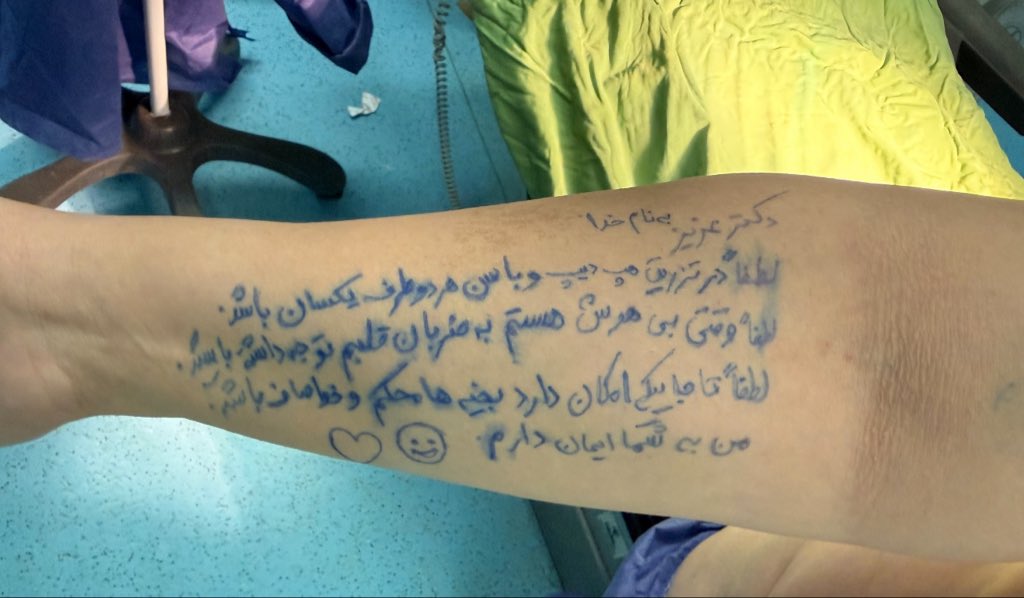 به نام خدا
دکتر عزیز
لطفاً در تزریق چپ دیپ و باسن هر دو طرف یکسان باشد.
لطفاً وقتی بی هوش هستم به ضربان قلبم توجه داشته باشید.
لطفاً تا جاییکه امکان دارد بخیه ها محکم و خوا صاف باشد.
من به شما ایمان دارم.